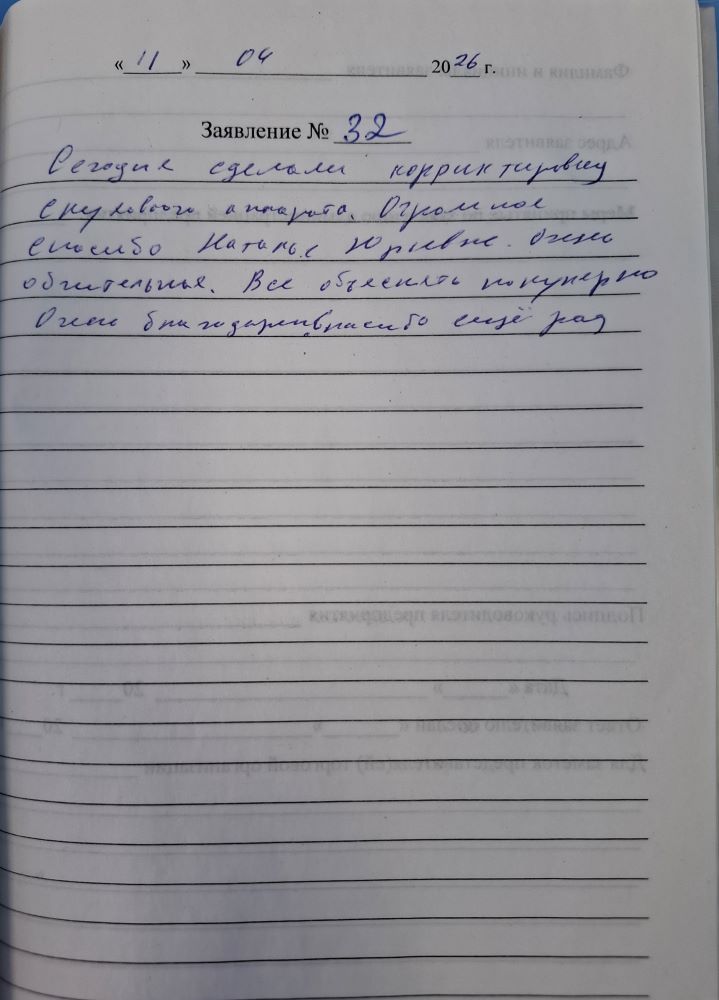 « 11 » 04 2026 г.
Заявление № 32
Сегодня сделали корриктировку
слухового аппарата. Огромное
спасибо Наталье Юрьевне. Очень
обчительная. Все объяснять популярно
Очень благодарен спасибо ещё раз